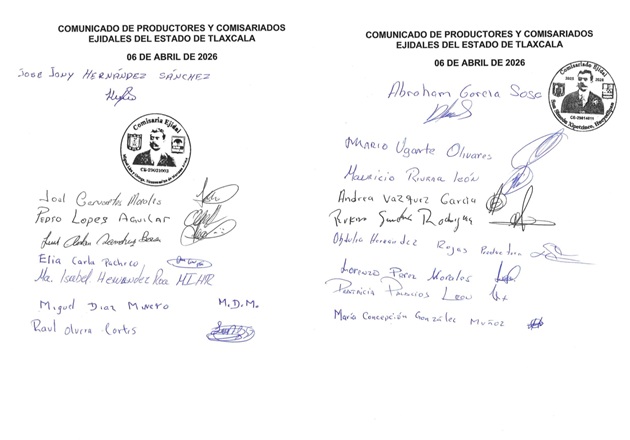 COMUNICADO DE PRODUCTORES Y COMISARIADOS
EJIDALES DEL ESTADO DE TLAXCALA
06 DE ABRIL DE 2026
JOSE JONY HERNÁNDEZ SÁNCHEZ
Comisaria Ejidal
Joel Cervantes Morales
Pedro Lopes Aguilar
Elia Carla Pacheco
Ma. Isabel Hernandez MIHR
Miguel Diaz Minero M.D.M.
Raul Olvera Cortes
COMUNICADO DE PRODUCTORES Y COMISARIADOS
EJIDALES DEL ESTADO DE TLAXCALA
06 DE ABRIL DE 2026
Comisariado Ejidal
Abraham Garcia Sosa
Mario Ugarte Olivares
Mauricio Rivera León
Andrea Vazquez Garcia
Sanchez Rodriguez
Hernández Rojas
Lorenzo Perez Morales
Patricia Palacios Leon
María Concepción González Muñoz